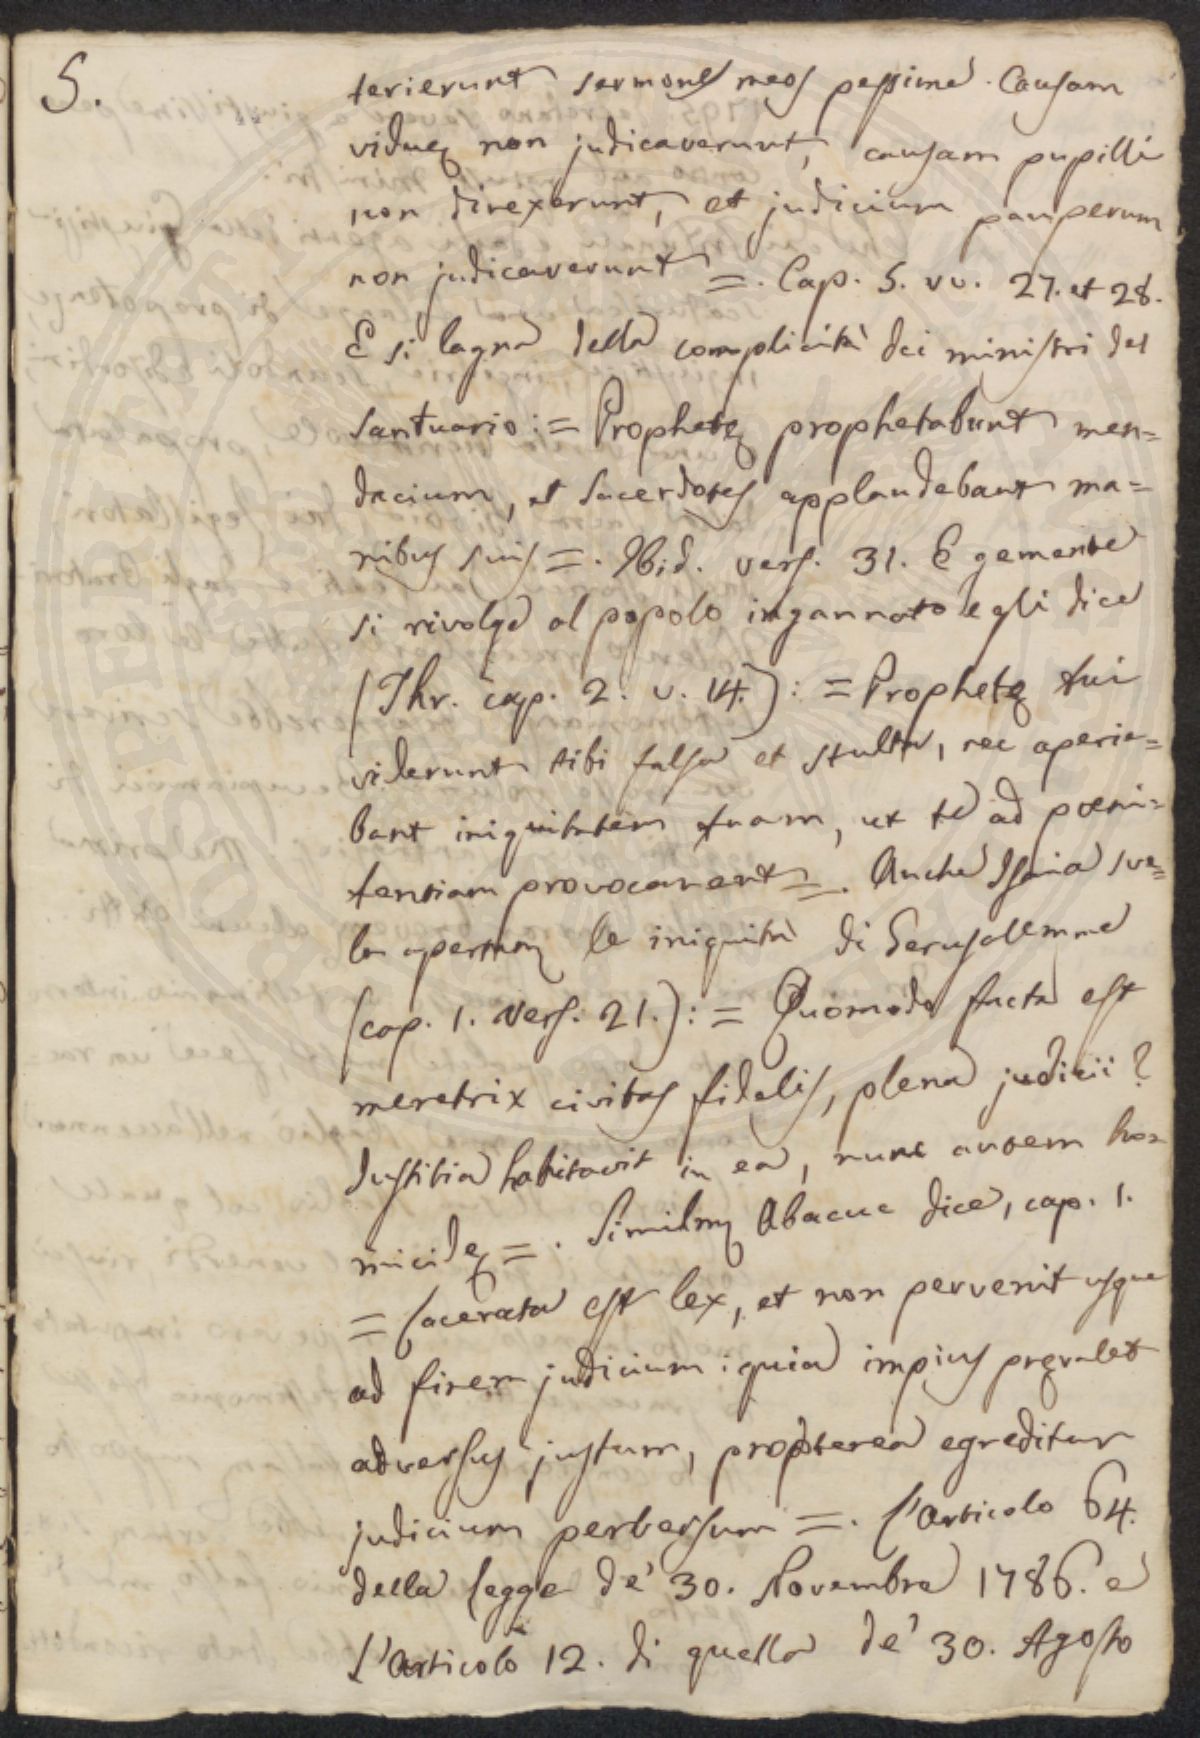 5.
terierunt sermones meos pessime. Causam
viduę non judicaverunt, causam pupilli
non direxerunt, et judicium pauperum
non judicaverunt =. Cap. 5. vv. 27. et 28.
E si lagna della complicità dei ministri del
santuario: = Prophetę prophetabunt men=
dacium, et sacerdotes applaudebant ma=
nibus suis =. Ibid. vers. 31. E gemente
si rivolge al popolo ingannato e gli dice
(Thr. cap. 2. v. 14.): = Prophetę tui
viderunt tibi falsa et stulta, nec aperie=
bant iniquitatem tuam, ut te ad pœni=
tentiam provocarent =. Anche Isaia sve=
la apertam le iniquità di Gerusalemme
(cap. 1. vers. 21.): = Quomodo facta est
meretrix civitas fidelis, plena judicii?
Justitia habitavit in ea, nunc autem ho=
micidę =. Similm Abacuc dice, cap. 1.
= Lacerata est lex, et non pervenit usque
ad finem judicium: quia impius pręvalet
adversus justum, propterea egreditur
judicium perversum =. L'Articolo 64.
della Legge de' 30. Novembre 1786. e
L'Articolo 12. di quella de' 30. Agosto